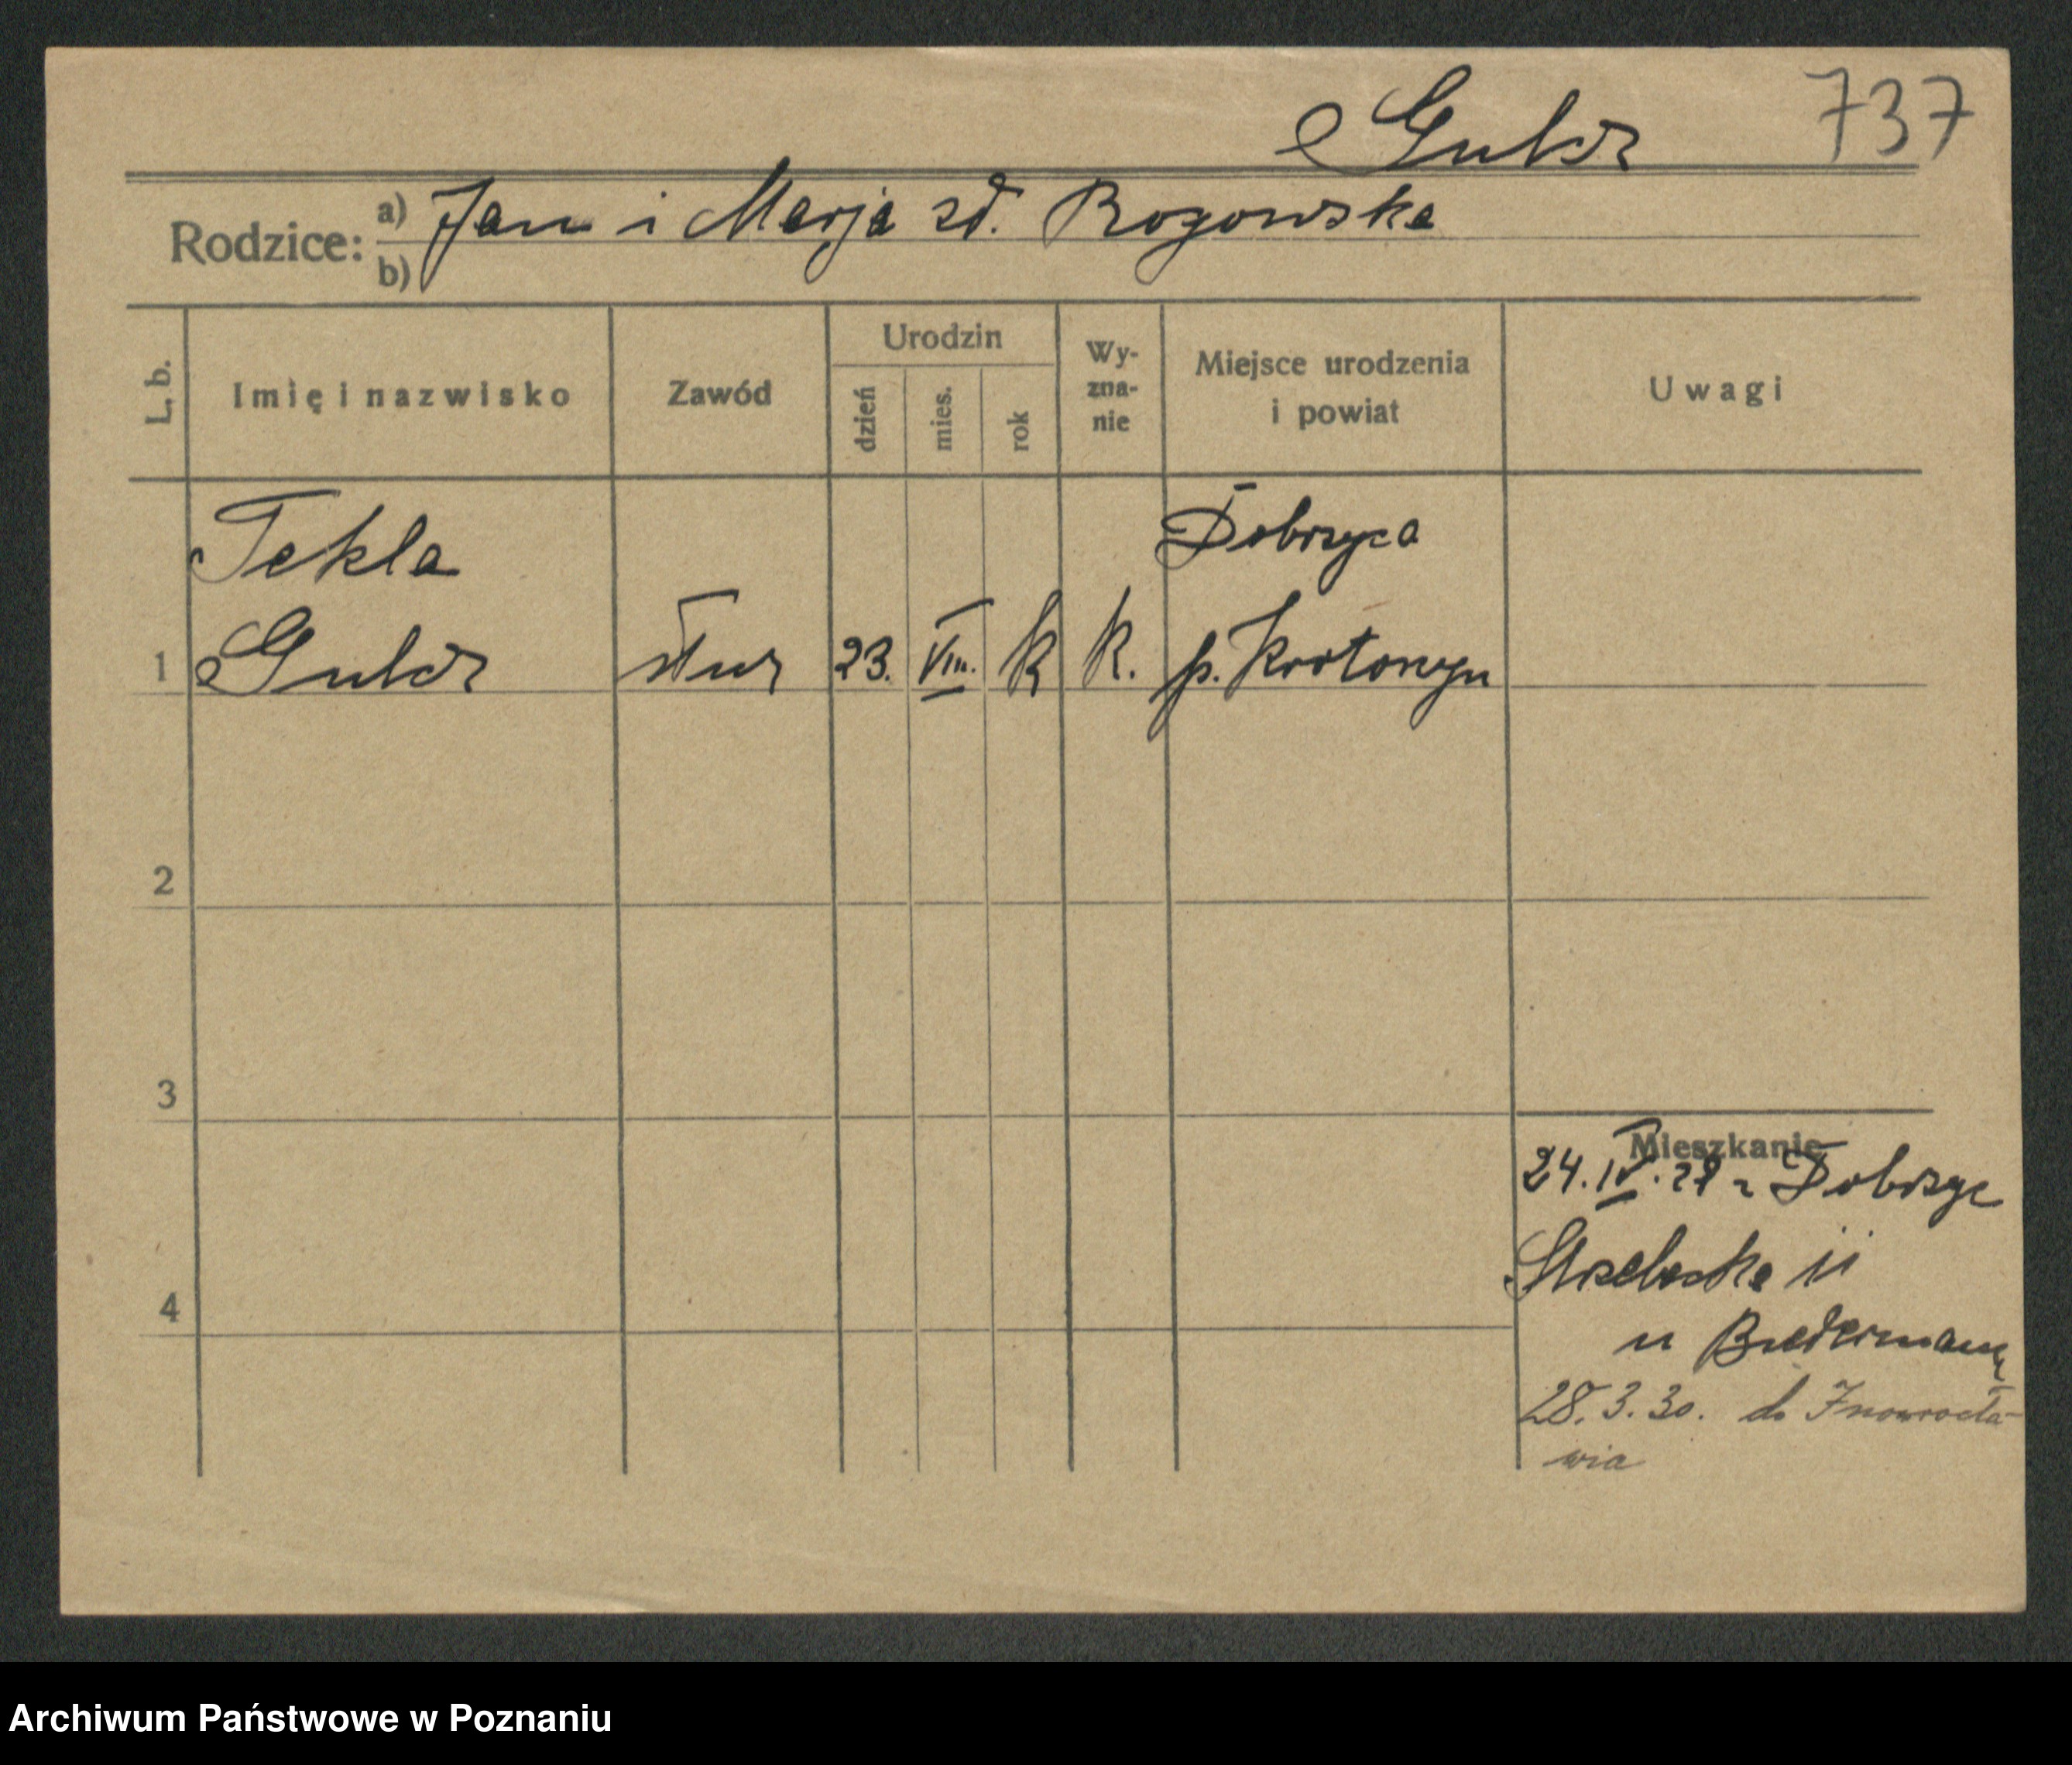 737
Jan i Marja zd. Rogowska
Rodzice: a)
b)
L. b.
Imię i nazwisko
Zawód
Urodzin
dzień
mies.
rok
Wy-
zna-
nie
Miejsce urodzenia
i powiat
Uwagi
Tekla
Dobrzyca
1
23. VIII.
k.
p. Krotoszyn
2
3
4
Mieszkanie
24. IV. z Dobrzyc
Strzelecka 11
u Biedermann
28. 3. 30. do Inowrocła-
wia
Archiwum Państwowe w Poznaniu